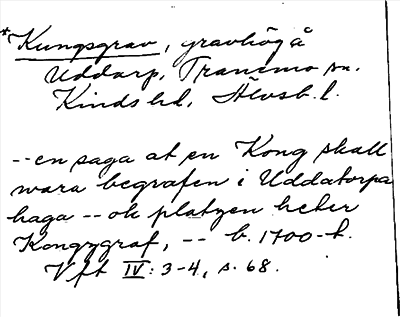 *Kungsgrav, gravhög å
Uddarp, Tranemo sn.
Kinds hd, Älvsb. l.
-- en saga at en Kong skall
wara begrafen i Uddatorpa
haga -- ok platzen heter
Kongzgraf, -- b. 1700-t.
Vft IV: 3-4, s. 68.